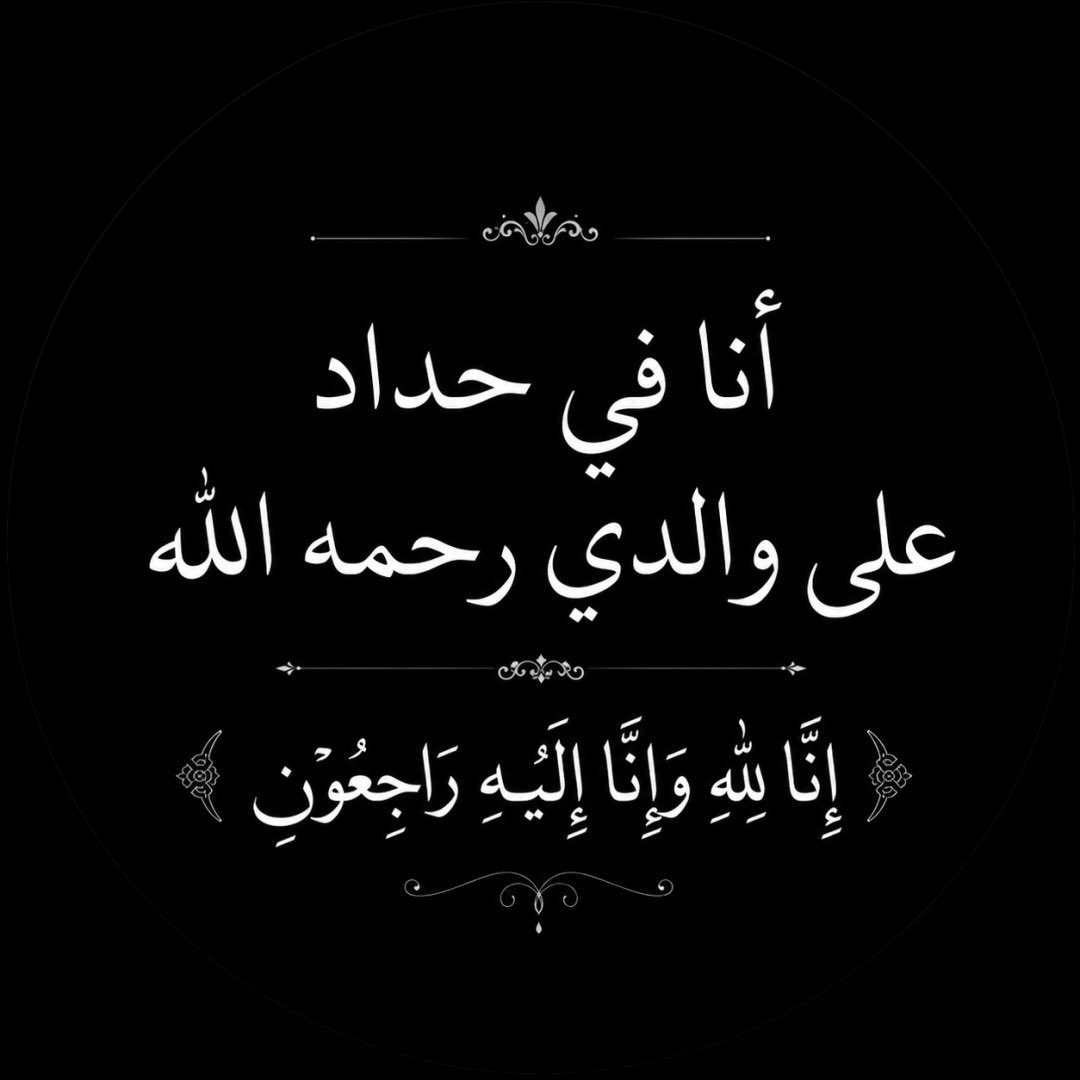 أنا في حداد
على والدي رحمه الله
﴿ إِنَّا لِلّٰهِ وَإِنَّا إِلَيُـهِ رَاجِعُوْنِ ﴾